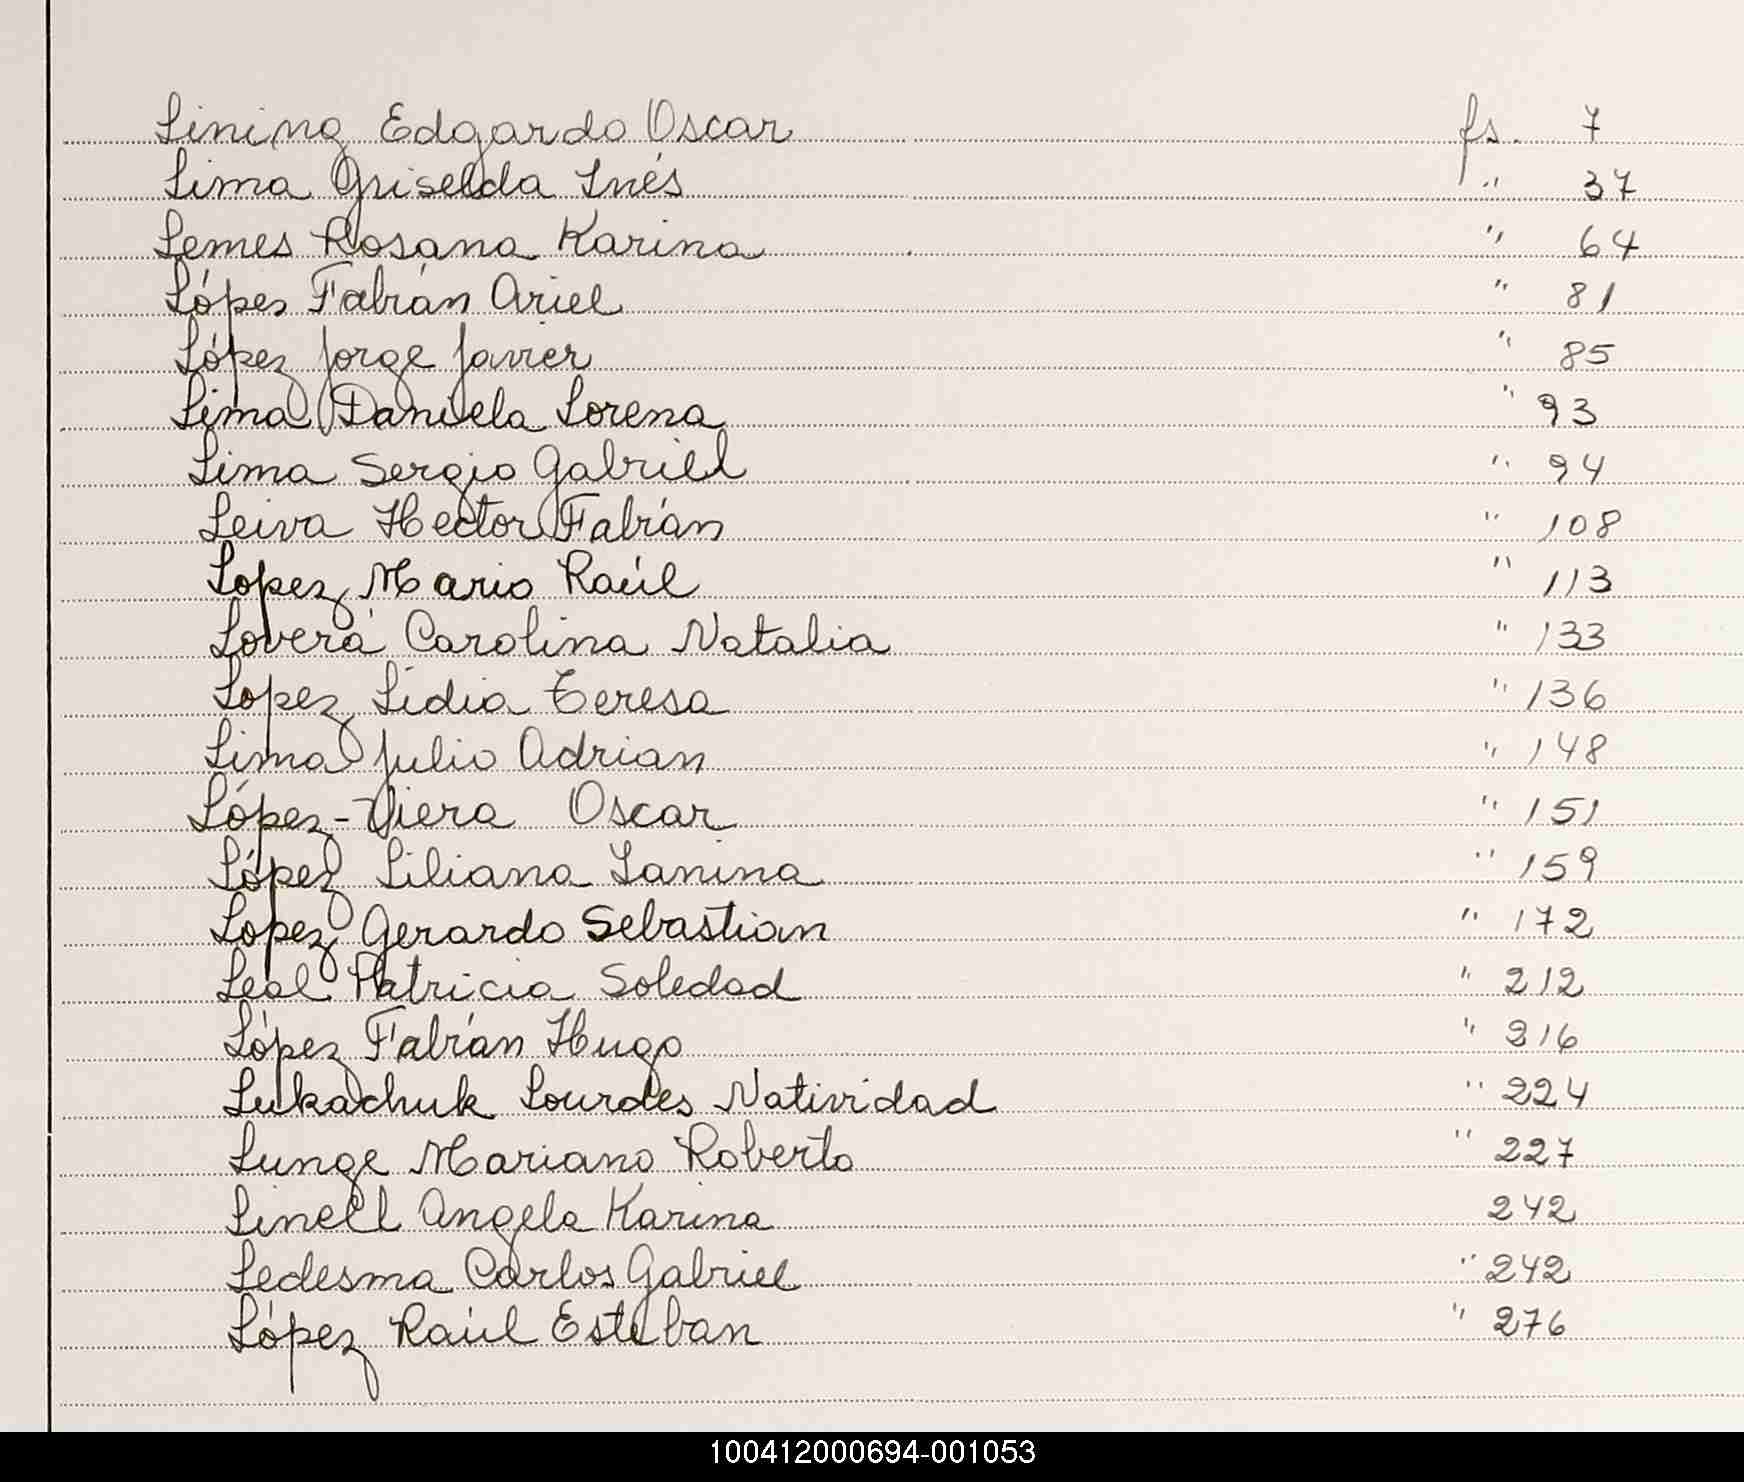 Lining Edgardo Oscar fs. 7
Lima Griselda Inés " 37
Lemes Rosana Karina " 64
Lópes Fabián Ariel " 81
López Jorge Javier " 85
Lima Daniela Lorena " 93
Lima Sergio Gabriel " 94
Leiva Hector Fabián " 108
Lopez Mario Raúl " 113
Lovera Carolina Natalia " 133
Lopez Lidia Teresa " 136
Lima Julio Adrian " 148
López-Viera Oscar " 151
López Liliana Yanina " 159
Lopez Gerardo Sebastian " 172
Leal Patricia Soledad " 212
López Fabián Hugo " 216
Lukachuk Lourdes Natividad " 224
Lunge Mariano Roberto " 227
Linell Angela Karina 242
Ledesma Carlos Gabriel " 242
López Raúl Esteban " 276
100412000694-001053